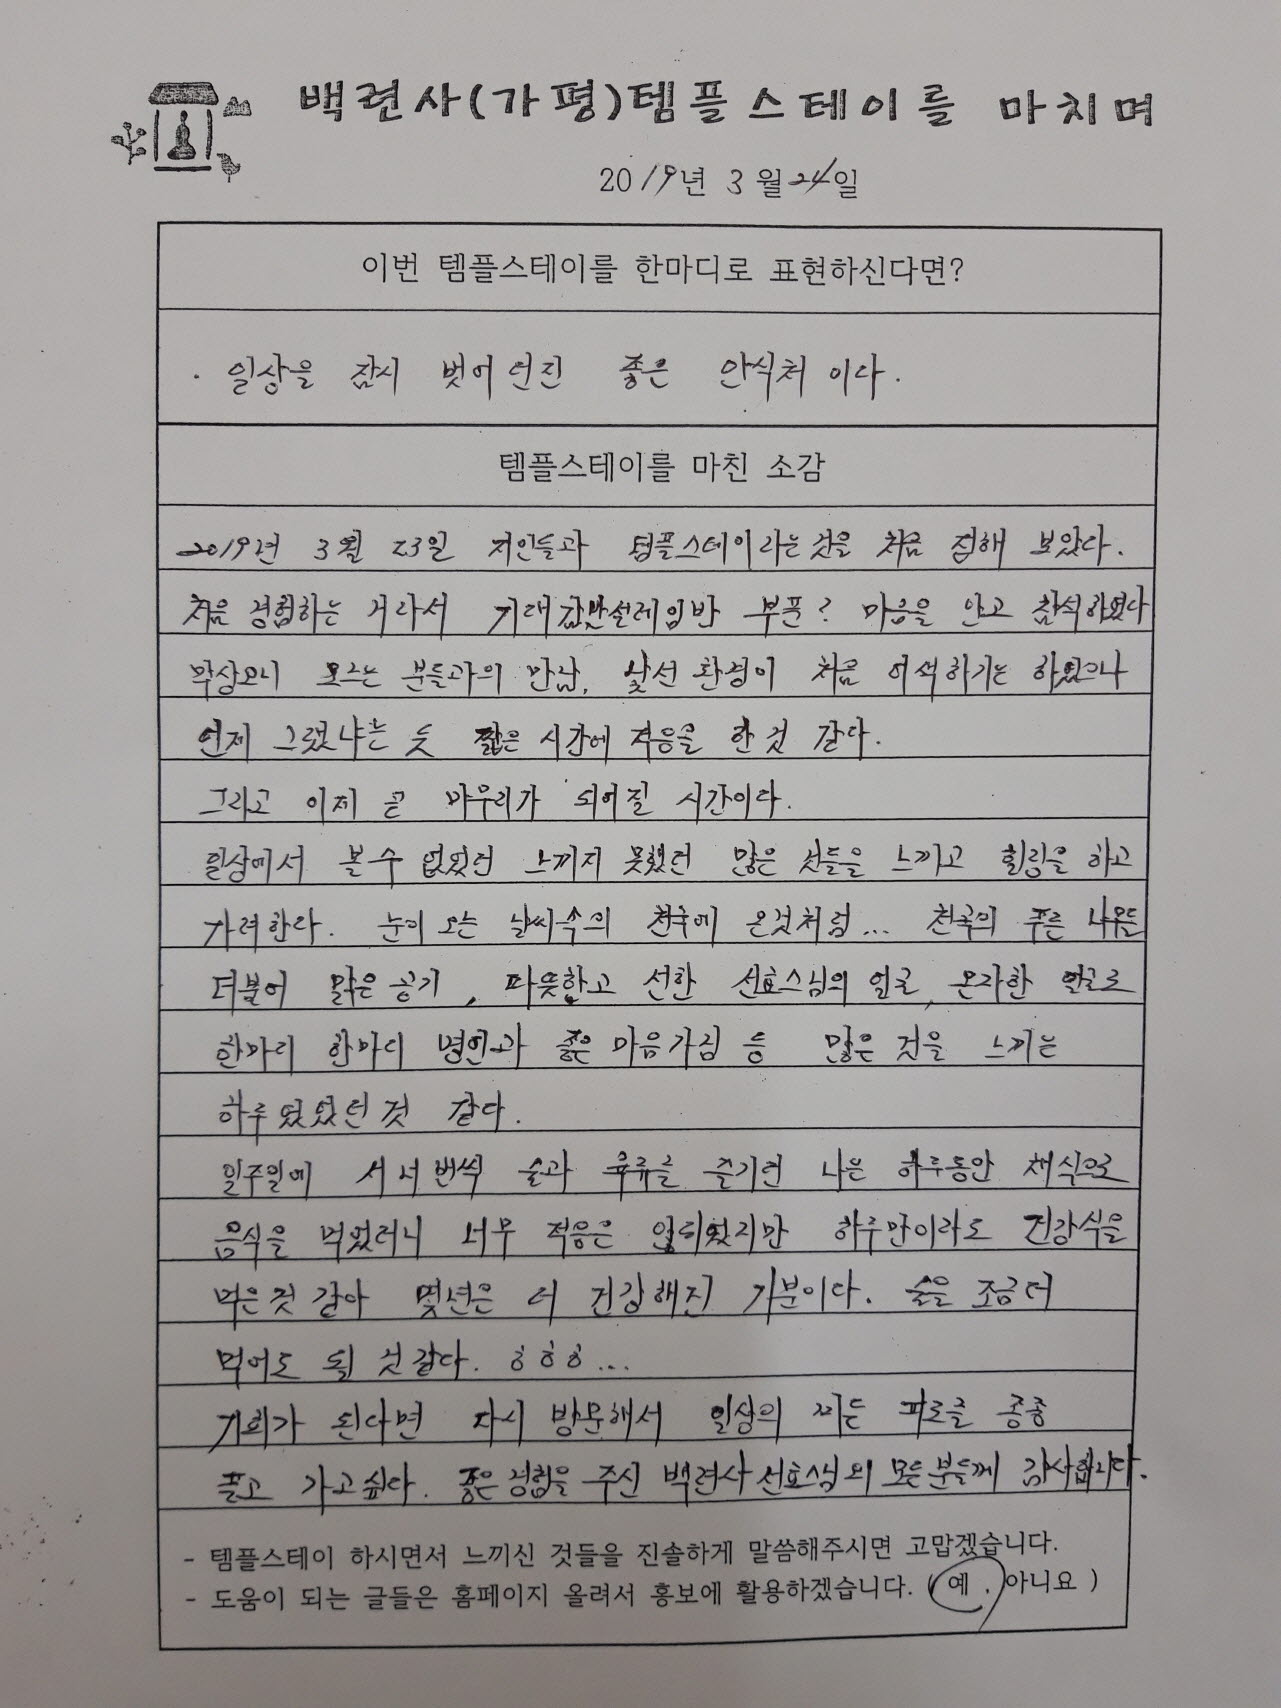 백련사(가평)템플스테이를 마치며
2019년 3월 24일
이번 템플스테이를 한마디로 표현하신다면?
· 일상을 잠시 벗어던진 좋은 안식처 이다.
템플스테이를 마친 소감
2019년 3월 23일 지인들과 템플스테이라는것을 처음 접해 보았다.
처음 경험하는 거라서 기대감반설레임반 부푼? 마음을 안고 참석하였다
막상오니 모르는 분들과의 만남, 낯선 환경이 처음 어색하기는 하였으나
언제 그랬냐는 듯 짧은 시간에 적응을 한것 같다.
그리고 이제 곧 마무리가 되어질 시간이다.
일상에서 볼수 없었던 느끼지 못했던 많은 것들을 느끼고 힐링을 하고
가려한다. 눈이 오는 날씨속의 천국에 온것처럼... 천국의 푸른 나무들
더불어 맑은 공기, 따뜻함고 선한 선효스님의 얼굴, 온자한 얼굴로
한마리 한마디 명언과 좋은 마음가짐 등 많은 것을 느끼는
하루였었던것 같다.
일주일에 서너번씩 술과 육류를 즐기던 나은 하루동안 채식으로
음식을 먹었더니 너무 적응은 안되었지만 하루만이라도 건강식을
먹은것 같아 몇년은 더 건강해진 기분이다. 술을 조금더
먹어도 될 것 같다. ㅎㅎㅎ...
기회가 된다면 다시 방문해서 일상의 찌든 피로를 종종
풀고 가고싶다. 좋은경험을 주신 백련사 선효스님외 모든분들께 감사합니다.
- 템플스테이 하시면서 느끼신 것들을 진솔하게 말씀해주시면 고맙겠습니다.
- 도움이 되는 글들은 홈페이지 올려서 홍보에 활용하겠습니다. ( 예 , 아니요 )